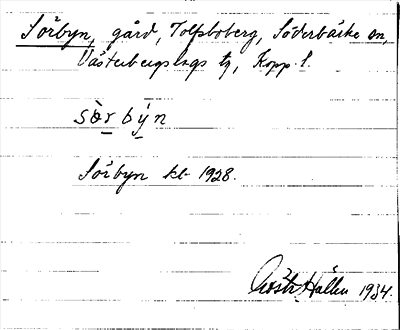 Sörbyn, gård, Tolfsboberg, Söderbärke sn,
Västerbergslags tg, Kopp. l.
sö̀r bý̱n
Sörbyn kb 1928.
Gösta Hallén 1934.